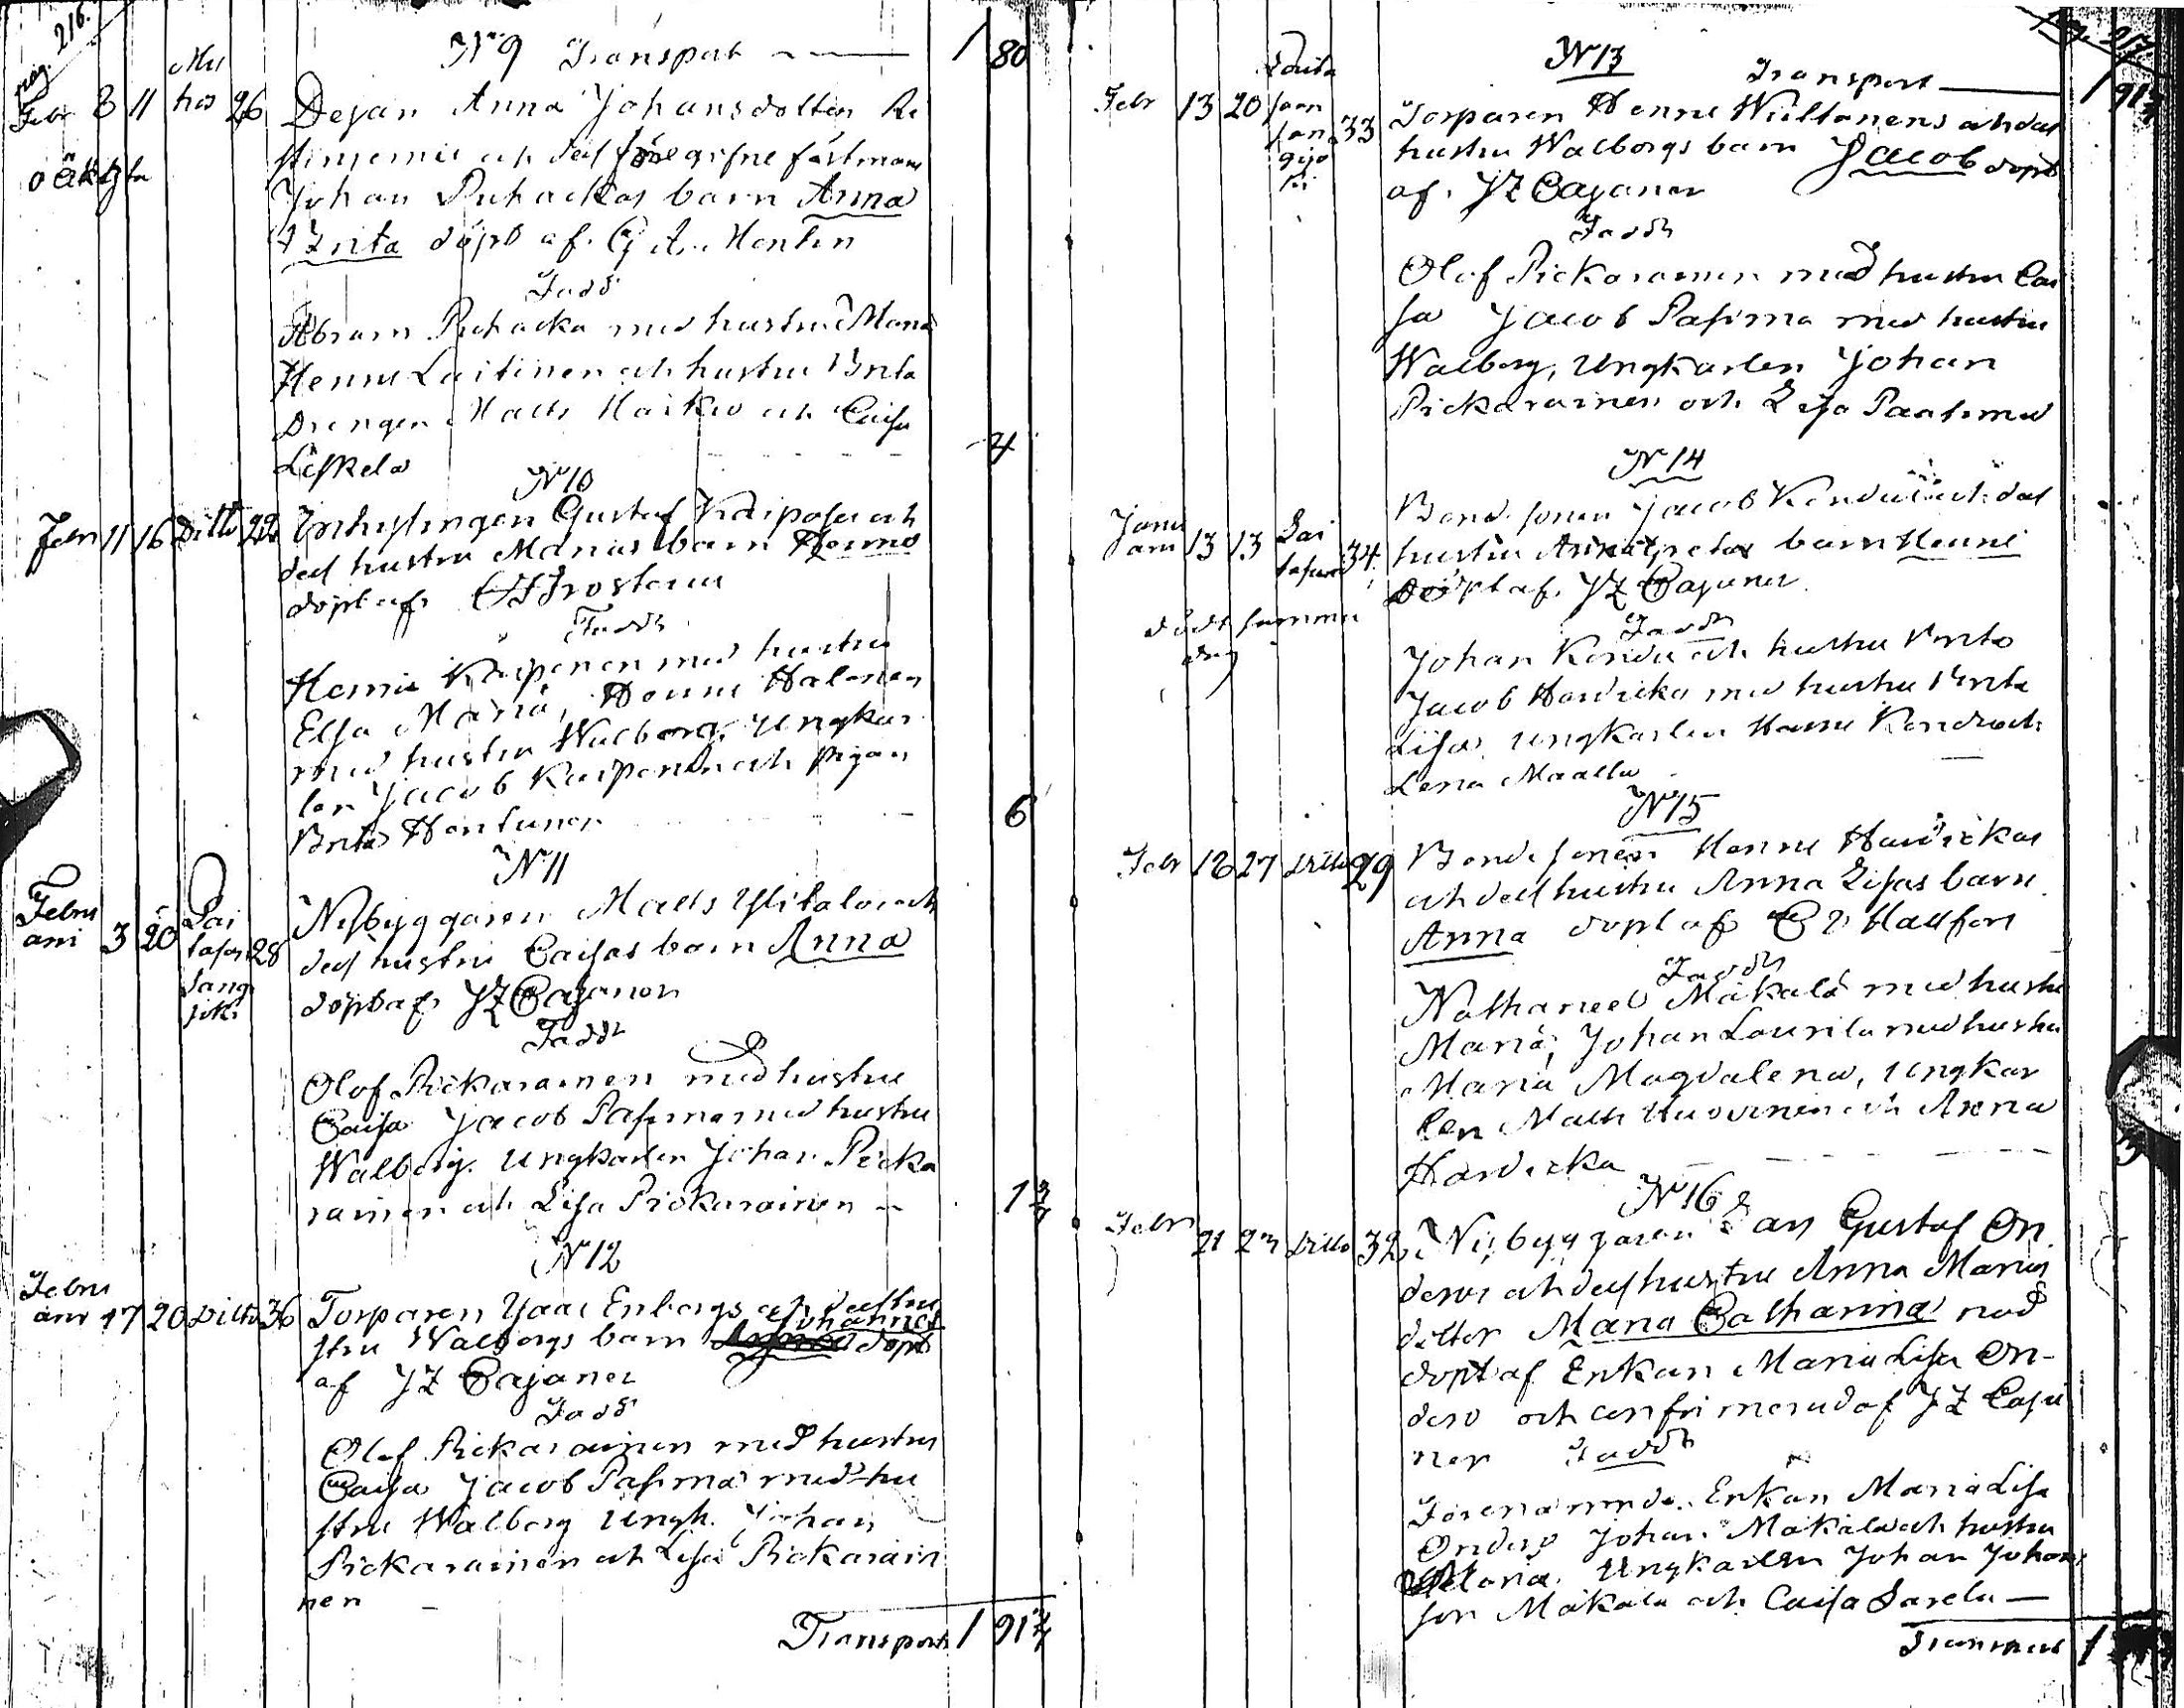 pag. 216.
N:9 Transport 1 80
Febr 8 11 Mu
hos 26
oäkta
Dejan Anna Johansdotter
och des föregifne fästman
Johan Puhackas barn Anna
Brita döpt af G A. Montin
Fadd
Abram Puhacka med hustru Maria
Henric Laitinen och hustru Brita
Drengen Matts och Caisa
Leskelä 4
N:10
Febr 11 16 Ditto 22
Inhysingen Gustaf och
des hustru Marias barn
döpt af Frosterus
Faddr
Henric Kaipenen med hustru
Elsa Maria, Henric Halonen
med hustru Walborg, Ungkar
len Jacob Kaipenen och pigan
Brita 6
N:11
Febru
ari 3 20 Lai
tasa 28
jang
jok:
Nybyggaren Matts Ylitalo och
des hustru Caisas barn Anna
döpt af JZ Cajaner
Faddr
Olof Pickarainen med hustru
Caisa Jacob Pasma med hustru
Walborg. Ungkarlen Johan Picka
rainen och Lisa Pickarainen 1 3/4
N:12
Febru
ari 17 20 Ditto 36
Torparen Isaac Enbergs och des hu
stru Walborgs barn Johannes döpt
af JZ Cajaner
Fadd
Olof Pickarainen med hustru
Caisa Jacob Pasma med hu
stru Walborg Ungk. Johan
Pickarainen och Lisa Pickarain
nen
Transport 1 91 3/4
pag. 217
N:13
Transport 1 91 3/4
Febr 13 20 33
Torparen Henric och des
hustru Walborgs barn Jacob döpt
af. JZ Cajaner
Faddr
Olof Pickarainen med hustru Cai
sa Jacob Pasma med hustru
Walborg, Ungkarlen Johan
Pickarainen och Lisa Paasma
N:14
Janu
ari 13 13 Lai
tasa 34
död samma
dag
Bondesonen Jacob Kendu och des
hustru Anna Gretas barn Henric
döpt af. JZ Cajaner
Faddr
Johan Kendu och hustru Brita
Jacob Hardicka med hustru Brita
Lisa, ungkarlen Henric Kendu och
Lena Maalla
N:15
Febr 18 27 Ditto 29
Bondesonen Henric Hardickas
och des hustru Anna Lisas barn
Anna döpt af Hallfors
Faddr
Nathaneel Mäkälä med hustru
Maria, Johan Laurila med hustru
Maria Magdalena, ungkar
len Matts Huovinen och Anna
Hardicka 3
N:16
Febr 21 23 Ditto 32
Nybyggaren Gustaf On
deros och des hustru Anna Marias
dotter Maria Catharina nöd
döpt af Enkan Maria Lisa On-
dero och confirmerad af JZ Caja
ner Faddr
Förenämnde Enkan Maria Lisa
Ondero Johan Mäkälä och hustru
Helena. Ungkarlen Johan Johans
son Mäkälä och Caisa Sarela
Transport 1